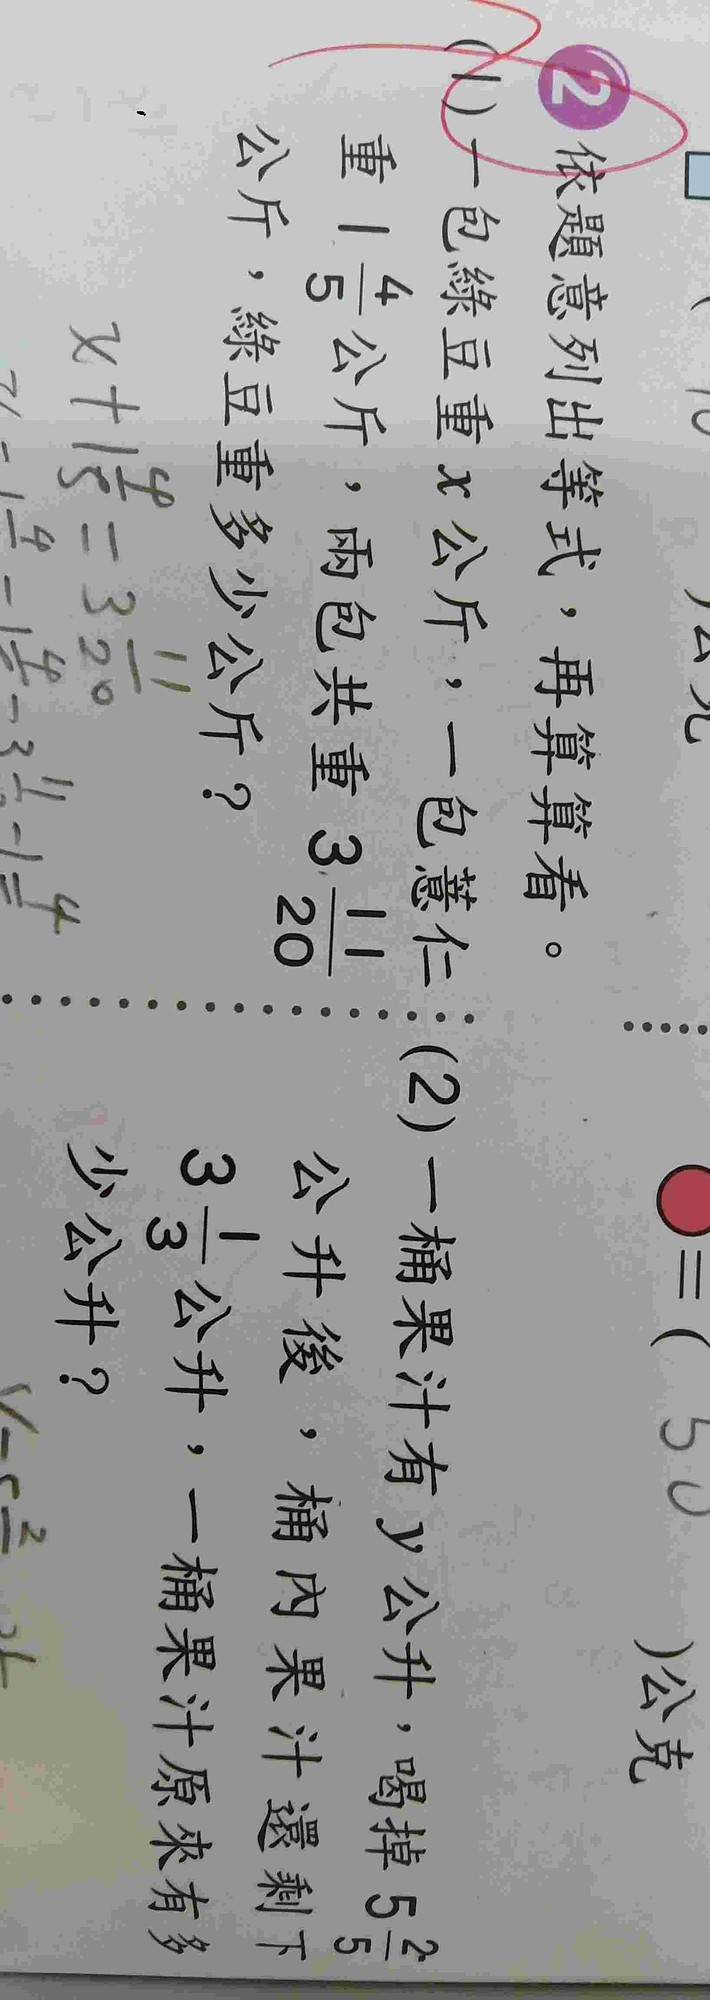 10 )公克
= ( 50 )公克
2 依題意列出等式，再算算看。
(1) 一包綠豆重 x 公斤，一包薏仁
重 1 4/5 公斤，兩包共重 3 11/20
公斤，綠豆重多少公斤？
x + 1 4/5 = 3 11/20
(2) 一桶果汁有 y 公升，喝掉 5 2/5
公升後，桶內果汁還剩下
3 1/3 公升，一桶果汁原來有多
少公升？